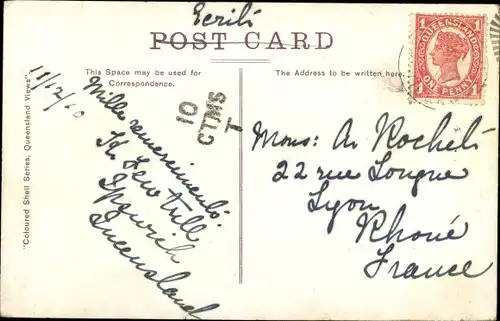 Ecrit
POST CARD
This Space may be used for
Correspondence.
The Address to be written here.
QUEENSLAND
1 1
ONE PENNY
10
CTMS
T
"Coloured Shell Series, Queensland Views"
Mille remerciments.
Ipswich
Queensland
Mons: A. Rochet
22 rue Longue
Lyon
Rhone
France